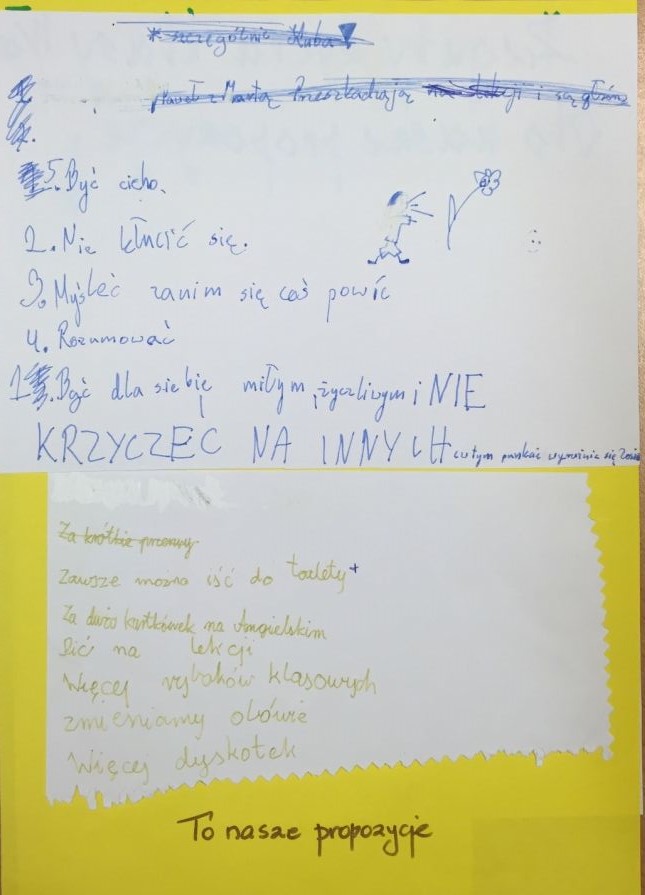 * szczególnie Kuba!
Paweł z Martą Przeszkadzają na lekcji i są głośno
5. Być cicho.
2. Nie kłucić się.
3. Myśleć zanim się coś powíc
4. Rozumować
1. Być dla siebie miłym, życzliwym i NIE
KRZYCZEĆ NA INNYCH w tym punkcie wyróżnia się
Za krótkie przerwy
Zawsze można iść do toalety +
Za dużo kartkówek na Angielskim
Pić na lekcji
Więcej klasowych
zmieniamy obówie
Więcej dyskotek
To nasze propozycje